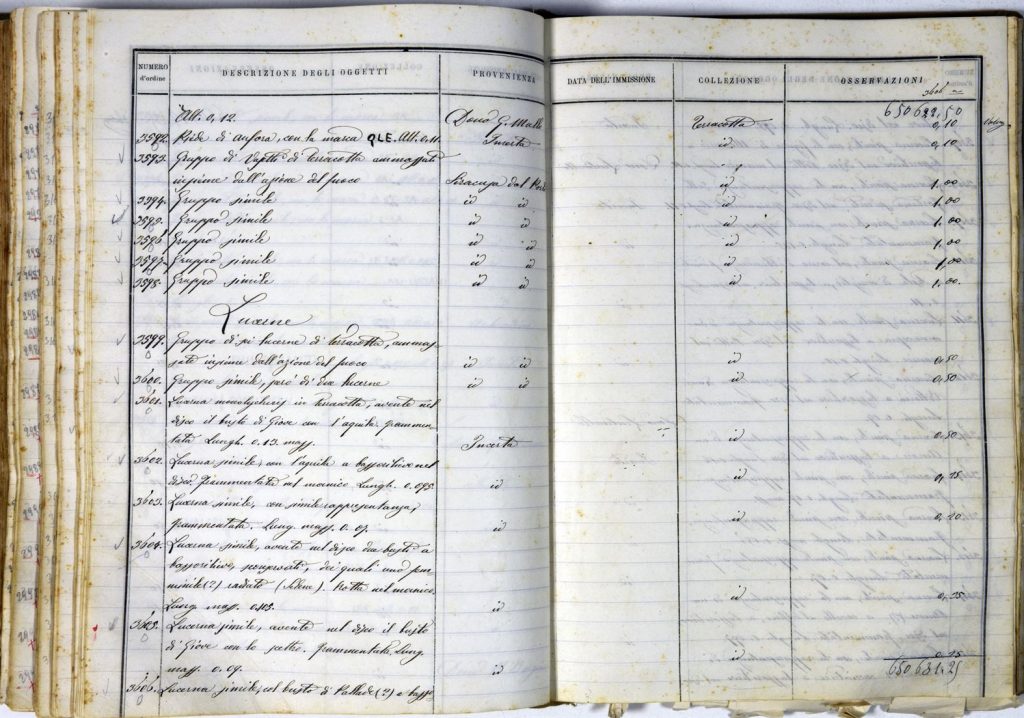 NUMERO d'ordine DESCRIZIONE DEGLI OGGETTI PROVENIENZA DATA DELL'IMMISSIONE COLLEZIONE OSSERVAZIONI
650622,50
All. 0,12. Dono G. Terracotta 0,10
3592. Piede di anfora, con la marca QLE. All. 0.11. Incerta id 0,10
3593. Gruppo di di terracotta ammassati
insieme dall'azione del fuoco Siracusa dal id 1,00
3594. Gruppo simile id id id 1,00
3595. Gruppo simile id id id 1,00
3596. Gruppo simile id id id 1,00
3597. Gruppo simile id id id 1,00
3598. Gruppo simile id id id 1,00
Lucerne
3599. Gruppo di sei lucerne di terracotta, ammas
sate insieme dall'azione del fuoco id id id 0,50
3600. Gruppo simile, però di due lucerne id id id 0,50
3601. Lucerna in terracotta, avente nel
disco il busto di Giove con l'aquila, frammen-
tata Lungh. 0.13. mass. Incerta id 0,50
3602. Lucerna simile, con l'aquila a bassorilievo nel
disco, frammentata nel manico Lungh. 0.095. id id 0,25
3603. Lucerna simile, con simile rappresentanza,
frammentata. Lung. mass. 0.09. id id 0,20
3604. Lucerna simile, avente nel disco due busti a
bassorilievo, sconservati, dei quali uno fem
minile (?) radiato (Selene). Rotta nel manico.
Lung. mass. 0.115. id id 0,25
3605. Lucerna simile, avente nel disco il busto
di Giove con lo scettro. frammentata Lung.
mass. 0.09. id id 0,25
650631,25
3606. Lucerna simile, col busto di Pallade (?) a basso